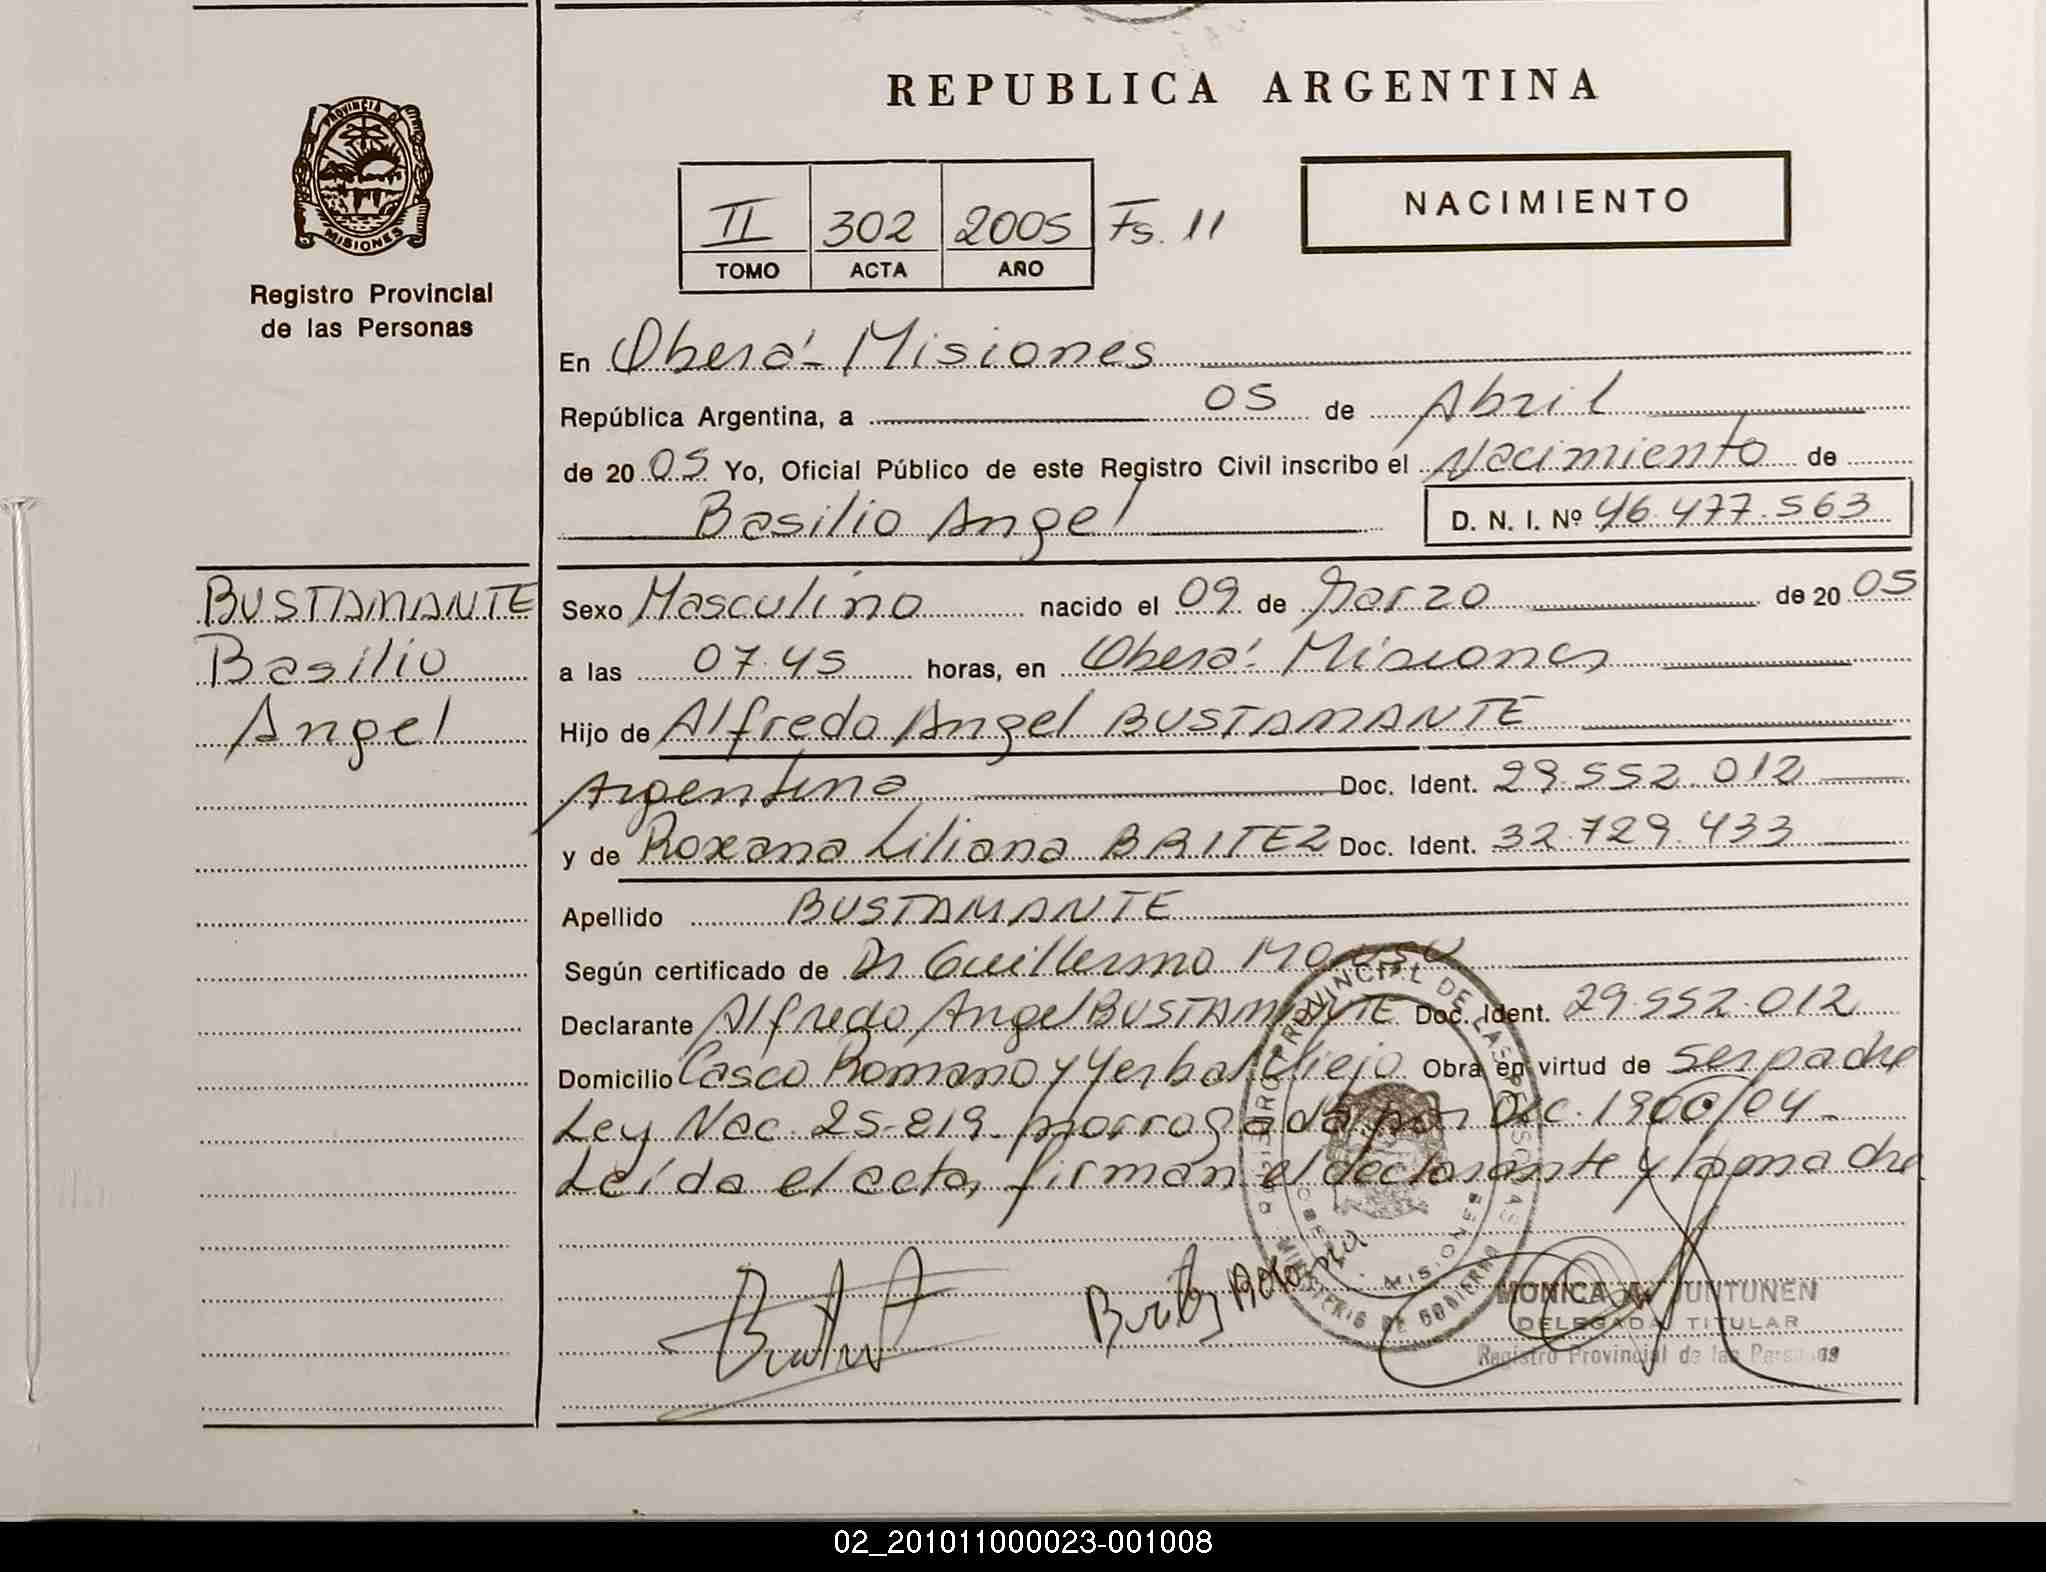 REPUBLICA ARGENTINA
PROVINCIA DE
MISIONES
Registro Provincial
de las Personas
II 302 2005 Fs. 11
TOMO ACTA AÑO
NACIMIENTO
En Oberá - Misiones
República Argentina, a 05 de Abril
de 20 05 Yo, Oficial Público de este Registro Civil inscribo el Nacimiento de
Basilio Angel D. N. I. Nº 46.477.563
BUSTAMANTE
Basilio
Angel
Sexo Masculino nacido el 09 de Marzo de 20 05
a las 07.45 horas, en Oberá - Misiones
Hijo de Alfredo Angel BUSTAMANTE
Argentina Doc. Ident. 29.552.012
y de Roxana Liliana BRITEZ Doc. Ident. 32.729.433
Apellido BUSTAMANTE
Según certificado de Dr Guillermo
Declarante Alfredo Angel BUSTAMANTE Doc. Ident. 29.552.012
Domicilio Casco Romano y Yerbal Viejo Obra en virtud de ser padre
Ley Nac. 25.819 prorrogada por Dec. 1900/04 -
Leída el acta, firman el declarante y la madre
REGISTRO PROVINCIAL DE LAS PERSONAS
MISIONES
MINISTERIO DE GOBIERNO
MONICA JUNTUNEN
DELEGADA TITULAR
Registro Provincial de las Personas
02_201011000023-001008